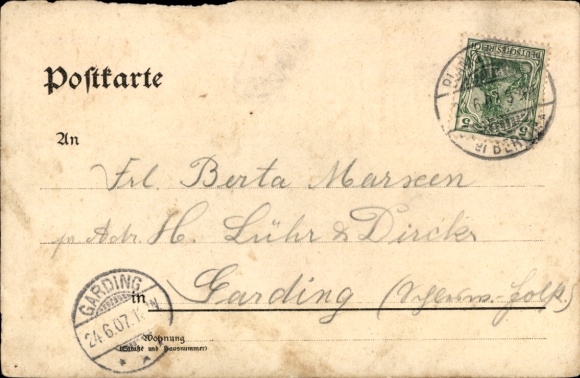 Postkarte
DEUTSCHES REICH
5 5
BERLIN
An
Frl. Berta Marxen
pr Adr. H. Lühr & Dircks
in Garding (Schlesw.-Holst.)
GARDING
24.6.07.
Wohnung
(Straße und Hausnummer)